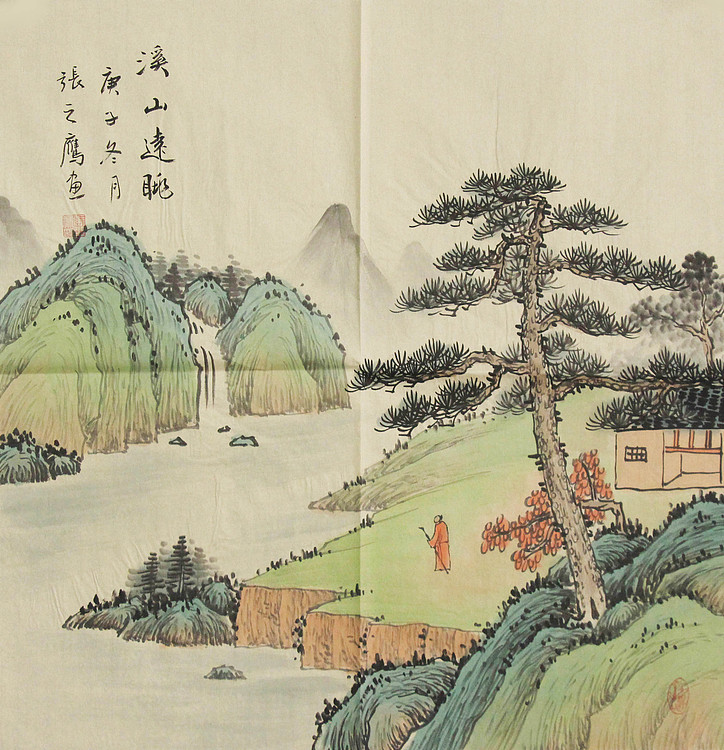 溪山遠眺
庚子冬月
張之鷹畫